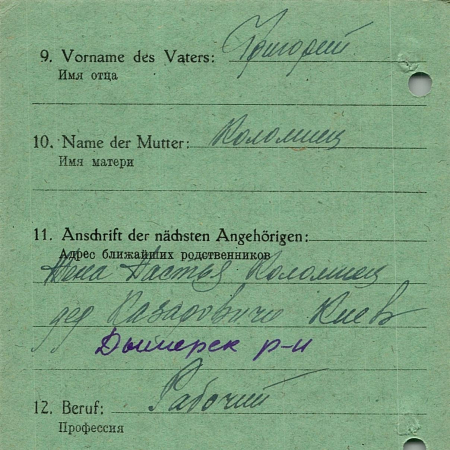 9. Vorname des Vaters: Григорей
Имя отца
10. Name der Mutter: Коломиец
Имя матери
11. Anschrift der nächsten Angehörigen:
Адрес ближайших родственников
Жена Настья Коломиец
дер Казаровичи Киев
Дымерск р-н
12. Beruf: Рабочий
Профессия